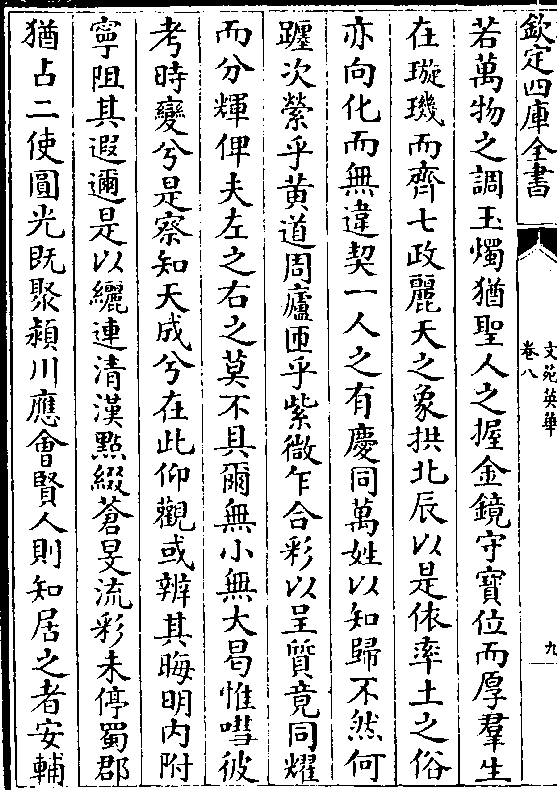 欽定四庫全書
文苑英華
卷八
九
若萬物之調玉燭猶聖人之握金鏡守寶位而厚羣生
在璇璣而齊七政麗天之象拱北辰以是依率土之俗
亦向化而無違契一人之有慶同萬姓以知歸不然何
躔次縈乎黄道周廬匝乎紫微乍合彩以呈質竟同耀
而分輝俾夫左之右之莫不具爾無小無大曷惟嘒彼
考時變兮是察知天成兮在此仰觀或辨其晦明内附
寧阻其遐邇是以纚連清漢㸃綴蒼旻流彩未停蜀郡
猶占二使圓光既聚潁川應會賢人則知居之者安輔